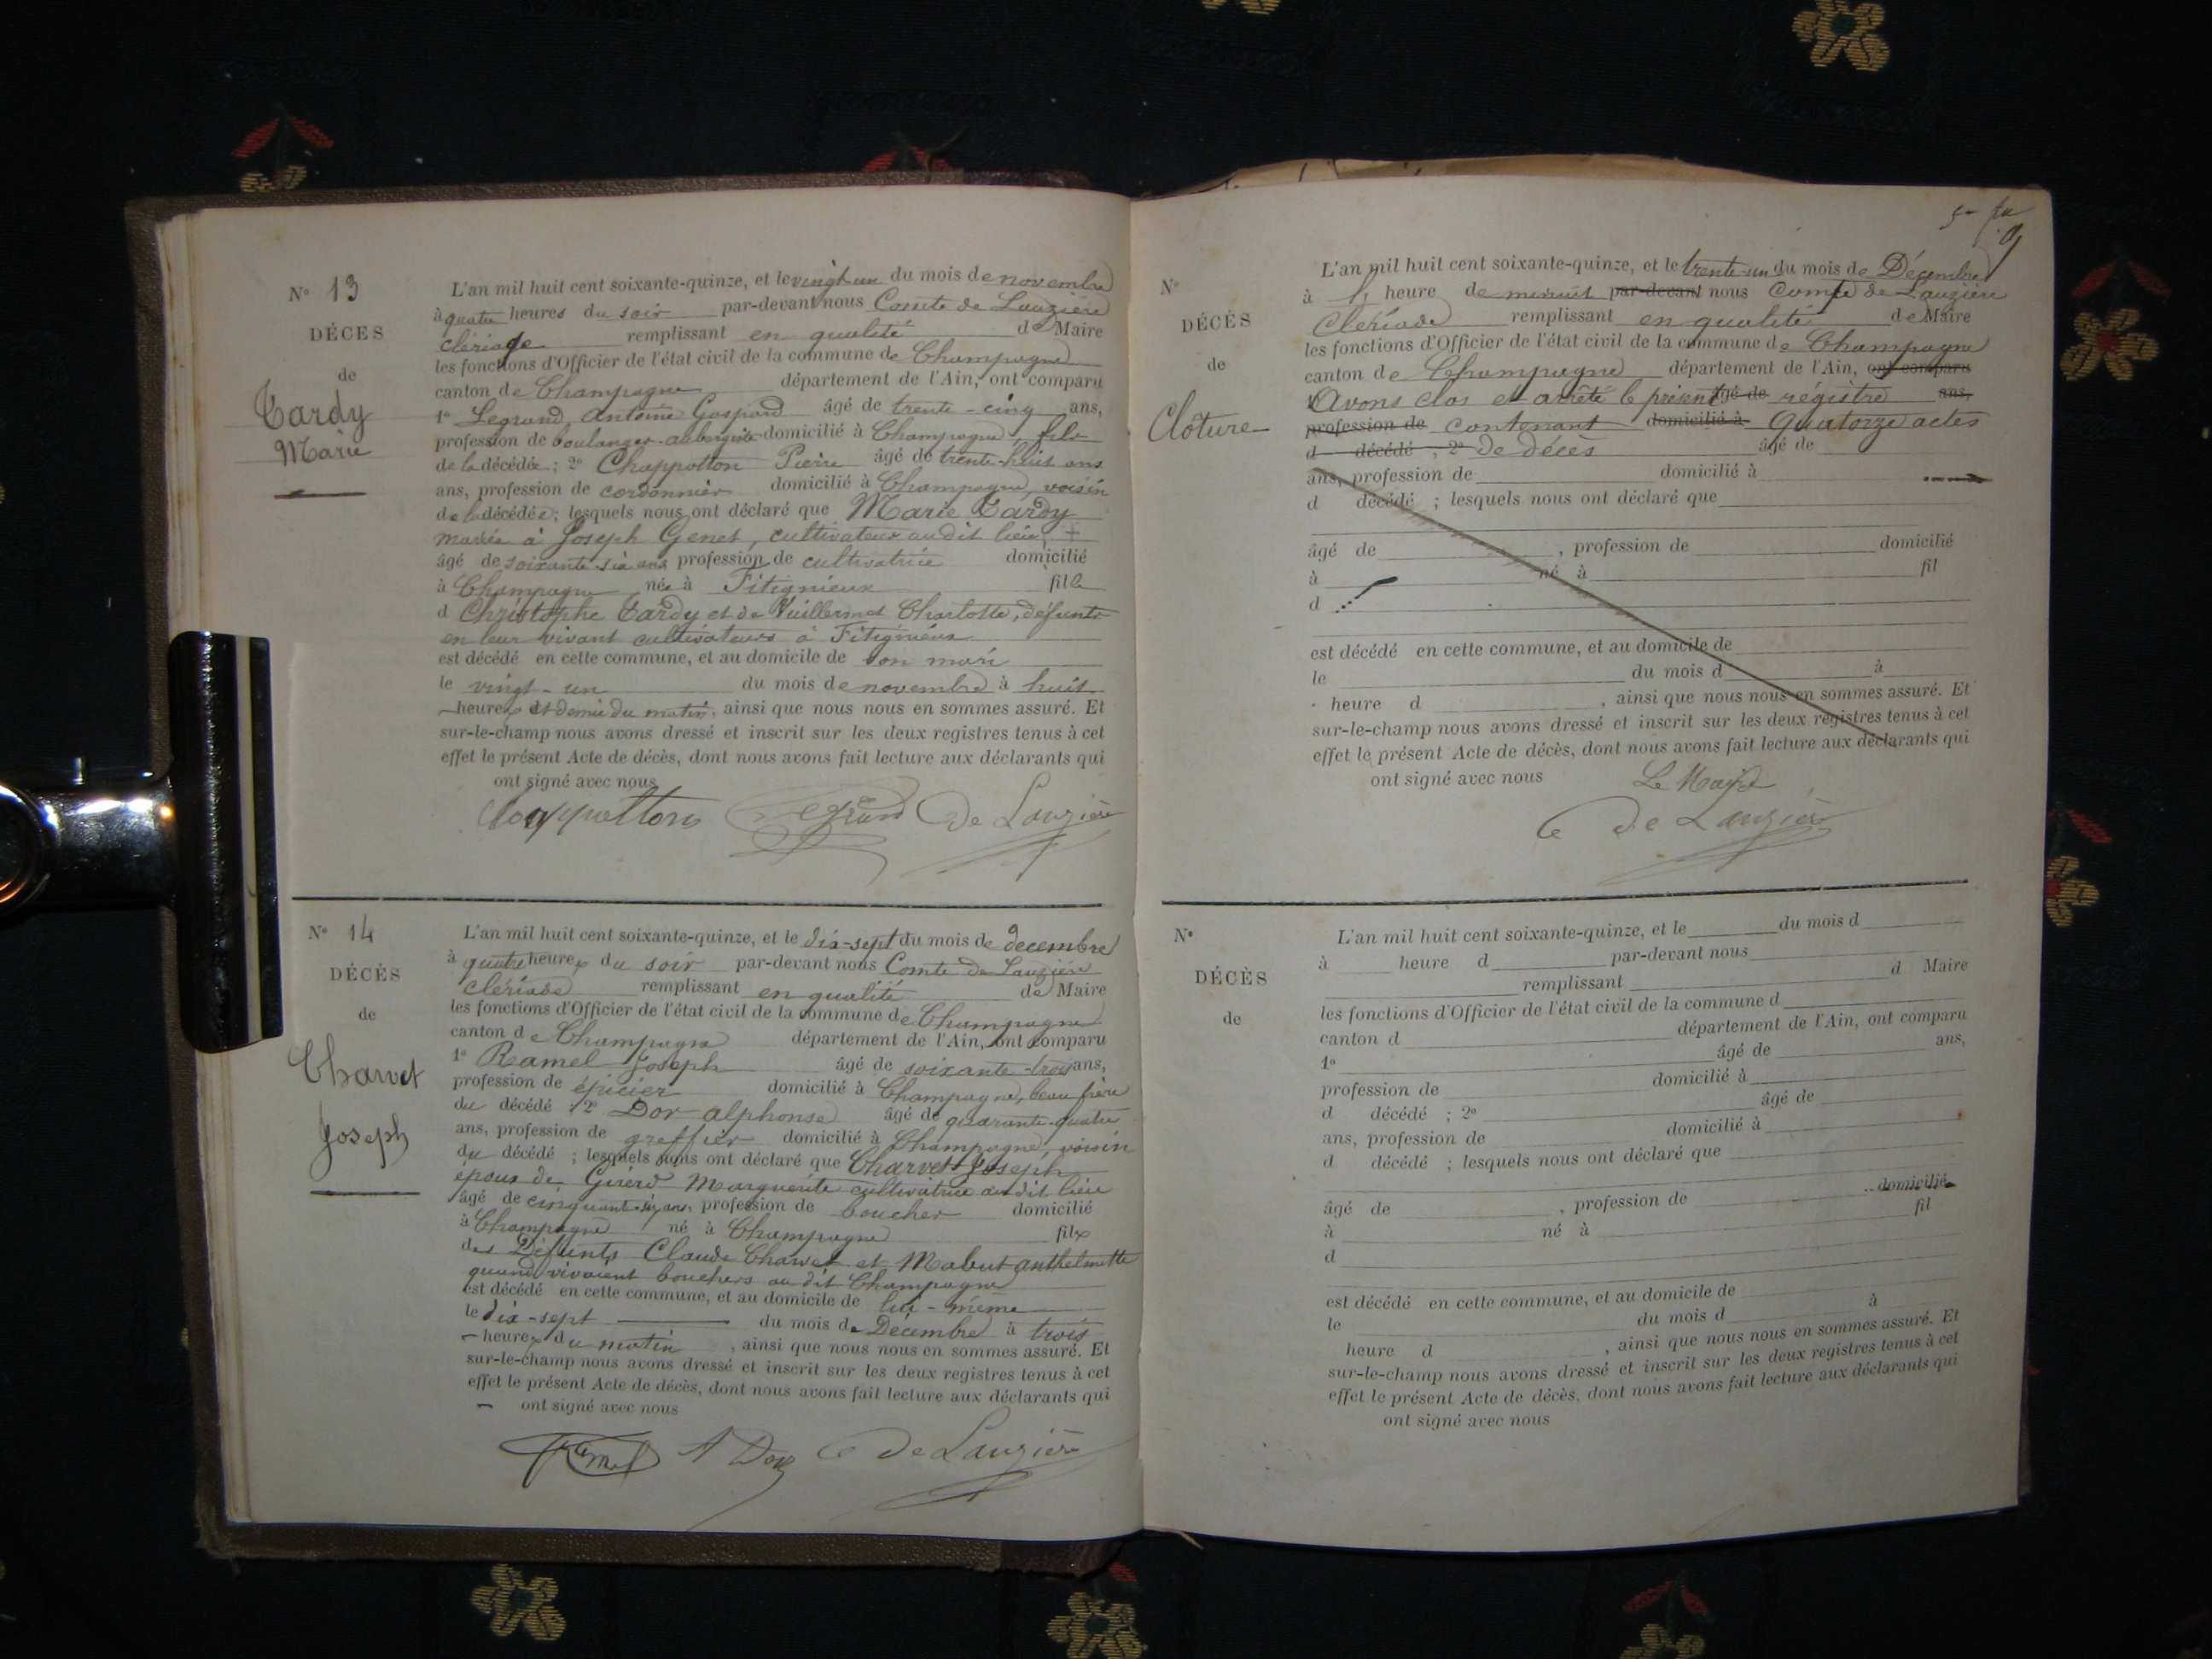 N° 13
DÉCES
de
Tardy
Marie
L'an mil huit cent soixante-quinze, et le vingt-un du mois de novembre
à quatre heures du soir par-devant nous Comte de Lauzière
cleriade remplissant en qualité de Maire
les fonctions d'Officier de l'état civil de la commune de Champagne
canton de Champagne département de l'Ain, ont comparu
1° Legrand Antoine Gaspard âgé de trente-cinq ans,
profession de boulanger-aubergiste domicilié à Champagne, fils
de la décédée; 2° Chappotton Pierre âgé de trente-huit ans
ans, profession de cordonnier domicilié à Champagne, voisin
de la décédée; lesquels nous ont déclaré que Marie Tardy
mariée à Joseph Genet, cultivateur au dit lieu,
âgé de soixante-six ans profession de cultivatrice domicilié
à Champagne née à Fitignieux fille
d Christophe Tardy et de Vuillermet Charlotte, défunts
en leur vivant cultivateurs à Fitignieux
est décédé en cette commune, et au domicile de son mari
le vingt-un du mois de novembre à huit
heures et demie du matin, ainsi que nous nous en sommes assuré. Et
sur-le-champ nous avons dressé et inscrit sur les deux registres tenus à cet
effet le présent Acte de décès, dont nous avons fait lecture aux déclarants qui
ont signé avec nous
Chappotton Legrand De Lauzière
N° 14
DÉCÈS
de
Charvet
Joseph
L'an mil huit cent soixante-quinze, et le dix-sept du mois de decembre
à quatre heures du soir par-devant nous Comte de Lauzière
cleriade remplissant en qualité de Maire
les fonctions d'Officier de l'état civil de la commune de Champagne
canton de Champagne département de l'Ain, ont comparu
1° Ramel Joseph âgé de soixante-trois ans,
profession de épicier domicilié à Champagne, beau frère
du décédé 2° Dor alphonse âgé de quarante-quatre
ans, profession de greffier domicilié à Champagne, voisin
du décédé ; lesquels nous ont déclaré que Charvet Joseph
époux de Girerd Marguerite cultivatrice au dit lieu
âgé de cinquante-six ans, profession de boucher domicilié
à Champagne né à Champagne fils
des Défunts Claude Charvet et Mabut anthelmette
quand vivaient bouchers au dit Champagne
est décédé en cette commune, et au domicile de lui-même
le dix-sept du mois de Décembre à trois
heures du matin , ainsi que nous nous en sommes assuré. Et
sur-le-champ nous avons dressé et inscrit sur les deux registres tenus à cet
effet le présent Acte de décès, dont nous avons fait lecture aux déclarants qui
ont signé avec nous
Ramel A Dor C De Lauzière
N°
DÉCÈS
de
Clôture
L'an mil huit cent soixante-quinze, et le trente-un du mois de Décembre
à heure de minuit par-devant nous Comte de Lauzière
Cleriade remplissant en qualité de Maire
les fonctions d'Officier de l'état civil de la commune de Champagne
canton de Champagne département de l'Ain, ont comparu
Avons clos et arrêté le présent âgé de régistre ans,
profession de contenant domicilié à Quatorze actes
d décédé ; 2° de décès âgé de
ans, profession de domicilié à
d décédé ; lesquels nous ont déclaré que
âgé de , profession de domicilié
à né à fil
d
est décédé en cette commune, et au domicile de
le du mois d à
heure d , ainsi que nous nous en sommes assuré. Et
sur-le-champ nous avons dressé et inscrit sur les deux registres tenus à cet
effet le présent Acte de décès, dont nous avons fait lecture aux déclarants qui
ont signé avec nous Le Maire
C de Lauzière
N°
DÉCÈS
de
L'an mil huit cent soixante-quinze, et le du mois d
à heure d par-devant nous
remplissant d Maire
les fonctions d'Officier de l'état civil de la commune d
canton d département de l'Ain, ont comparu
1° âgé de ans,
profession de domicilié à
d décédé ; 2° âgé de
ans, profession de domicilié à
d décédé ; lesquels nous ont déclaré que
âgé de , profession de domicilié
à né à fil
d
est décédé en cette commune, et au domicile de
le du mois d à
heure d , ainsi que nous nous en sommes assuré. Et
sur-le-champ nous avons dressé et inscrit sur les deux registres tenus à cet
effet le présent Acte de décès, dont nous avons fait lecture aux déclarants qui
ont signé avec nous